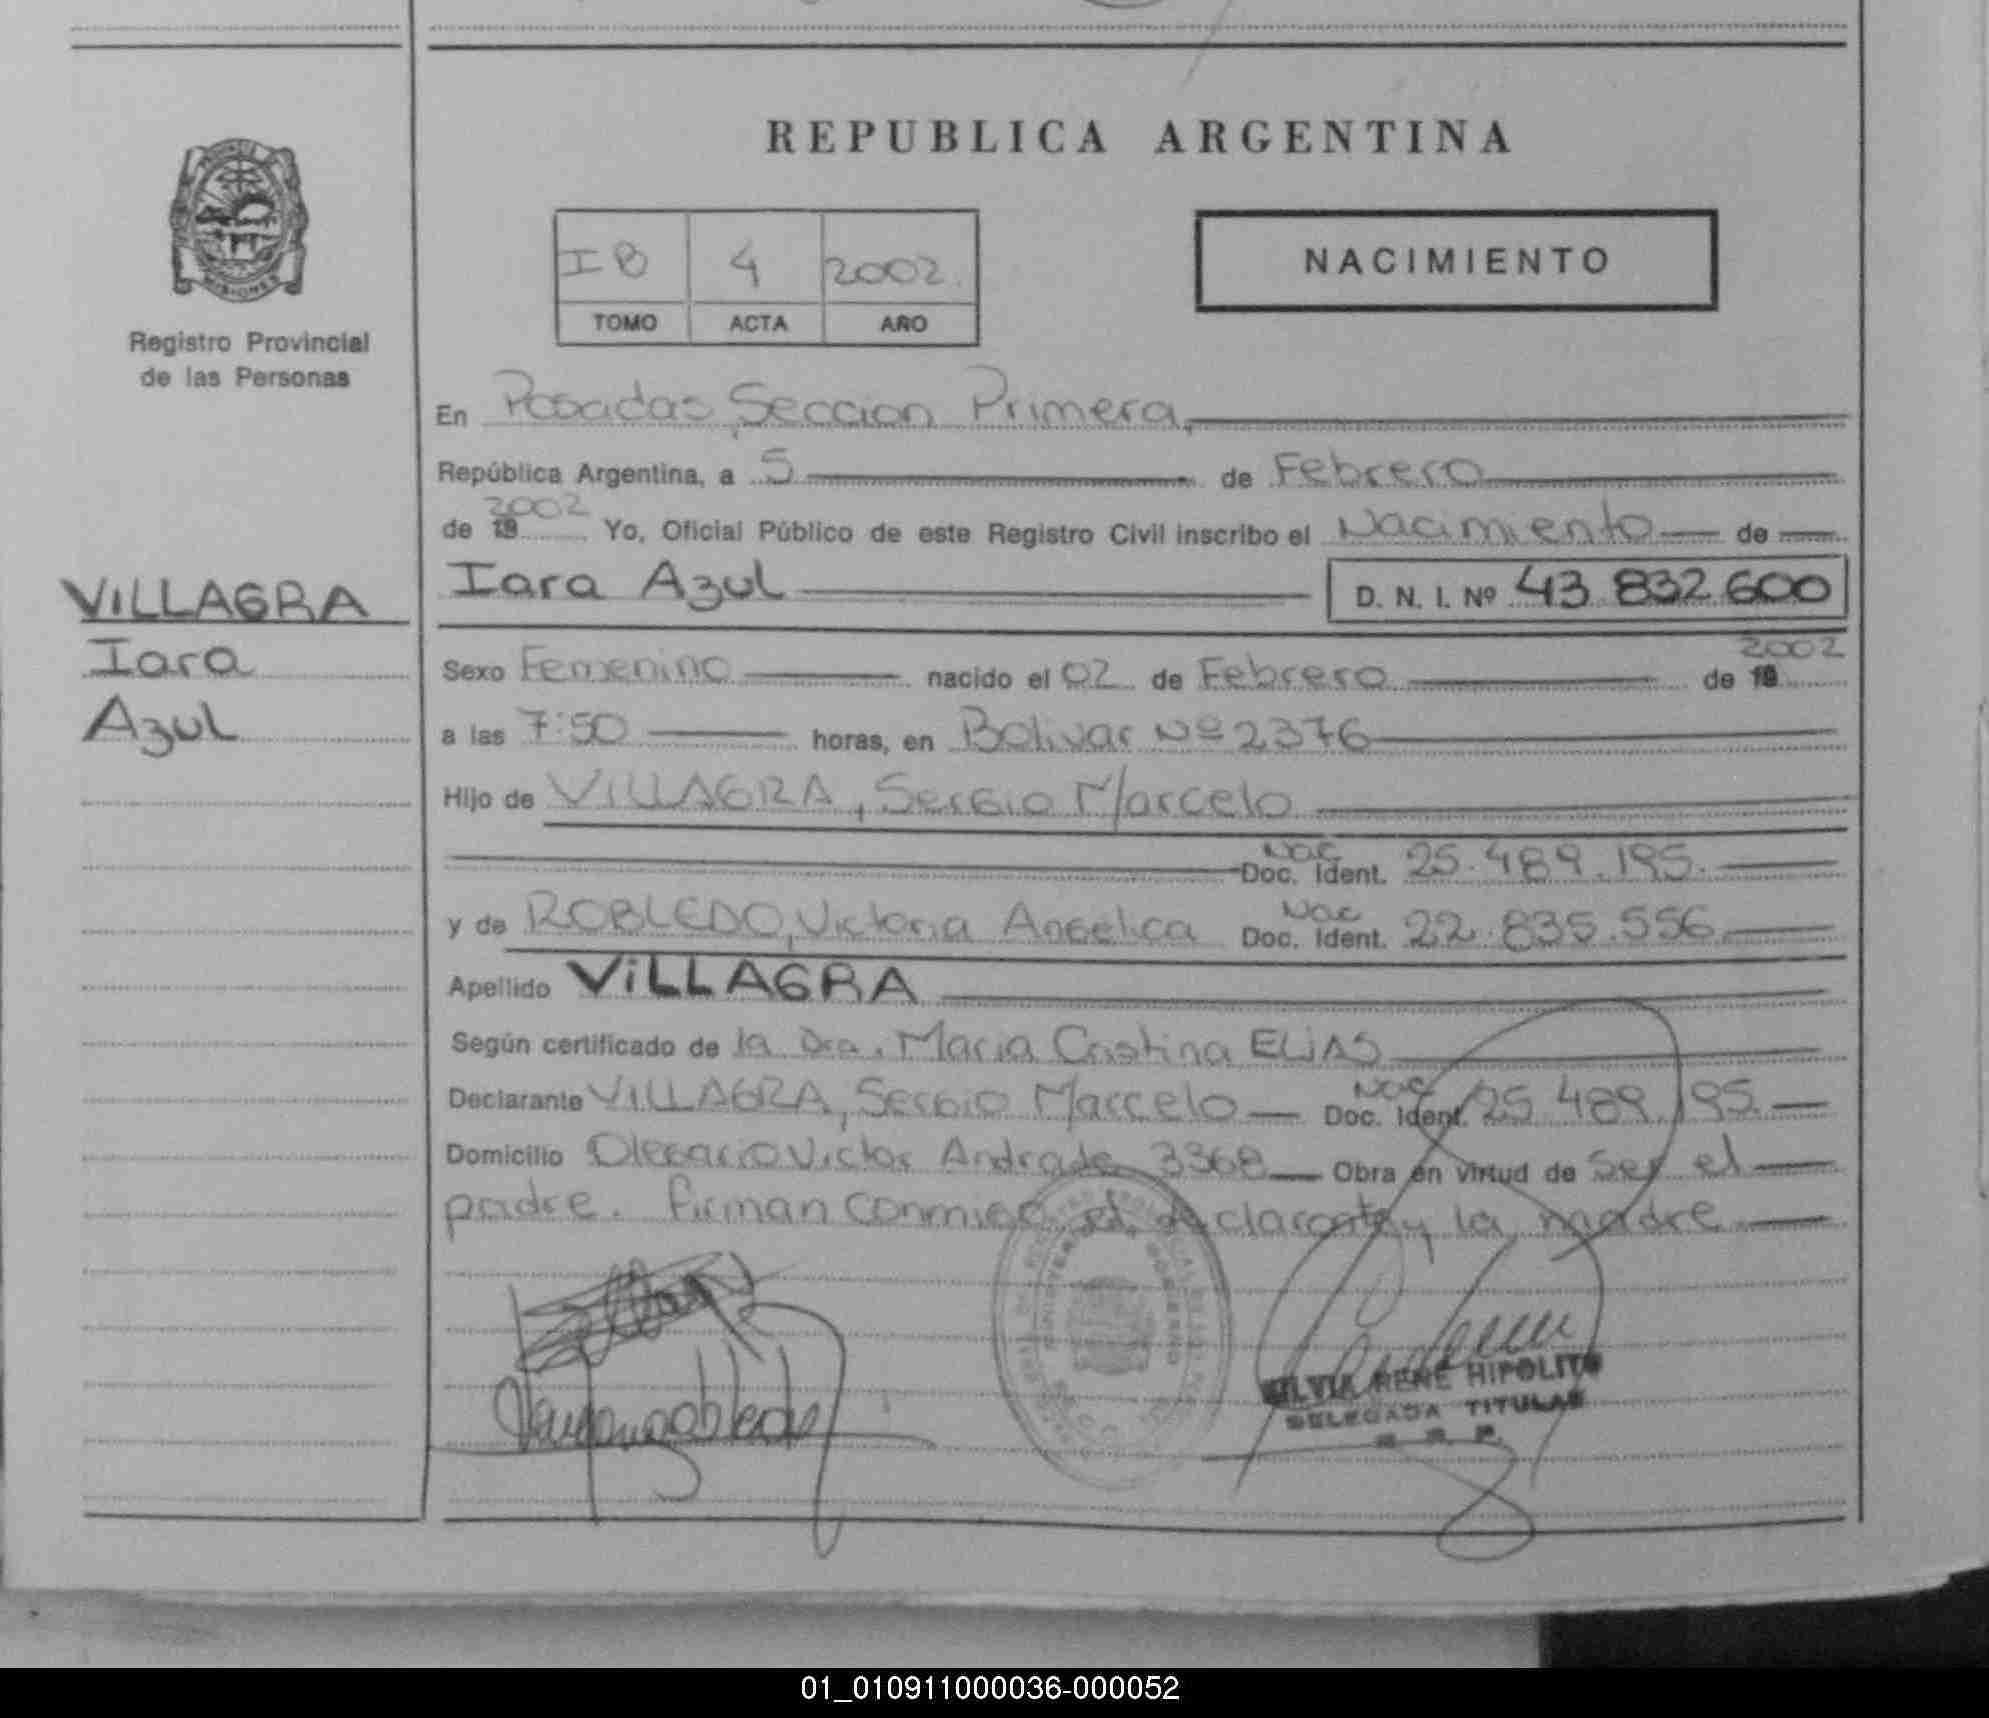 REPUBLICA ARGENTINA
MISIONES
Registro Provincial
de las Personas
IB 4 2002.
TOMO ACTA AÑO
NACIMIENTO
En Posadas, Seccion Primera,
República Argentina, a 5 de Febrero
de 19 2002 Yo, Oficial Público de este Registro Civil inscribo el Nacimiento de
VILLAGRA
Iara
Azul
Iara Azul D. N. I. Nº 43.832.600
Sexo Femenino nacido el 02 de Febrero de 19 2002
a las 7:50 horas, en Bolivar Nº 2376
Hijo de VILLAGRA, Sergio Marcelo
Nac
Doc. Ident. 25.489.195.
y de ROBLEDO, Victoria Angelica Nac Doc. Ident. 22.835.556
Apellido VILLAGRA
Según certificado de la Dra. Maria Cristina ELIAS
Declarante VILLAGRA, Sergio Marcelo Nac Doc. Ident. 25.489.195.
Domicilio Olegario Victor Andrade 3368 Obra en virtud de ser el
padre. Firman conmigo el declarante y la madre
SILVIA RENE HIPOLITO
DELEGADA TITULAR
01_010911000036-000052